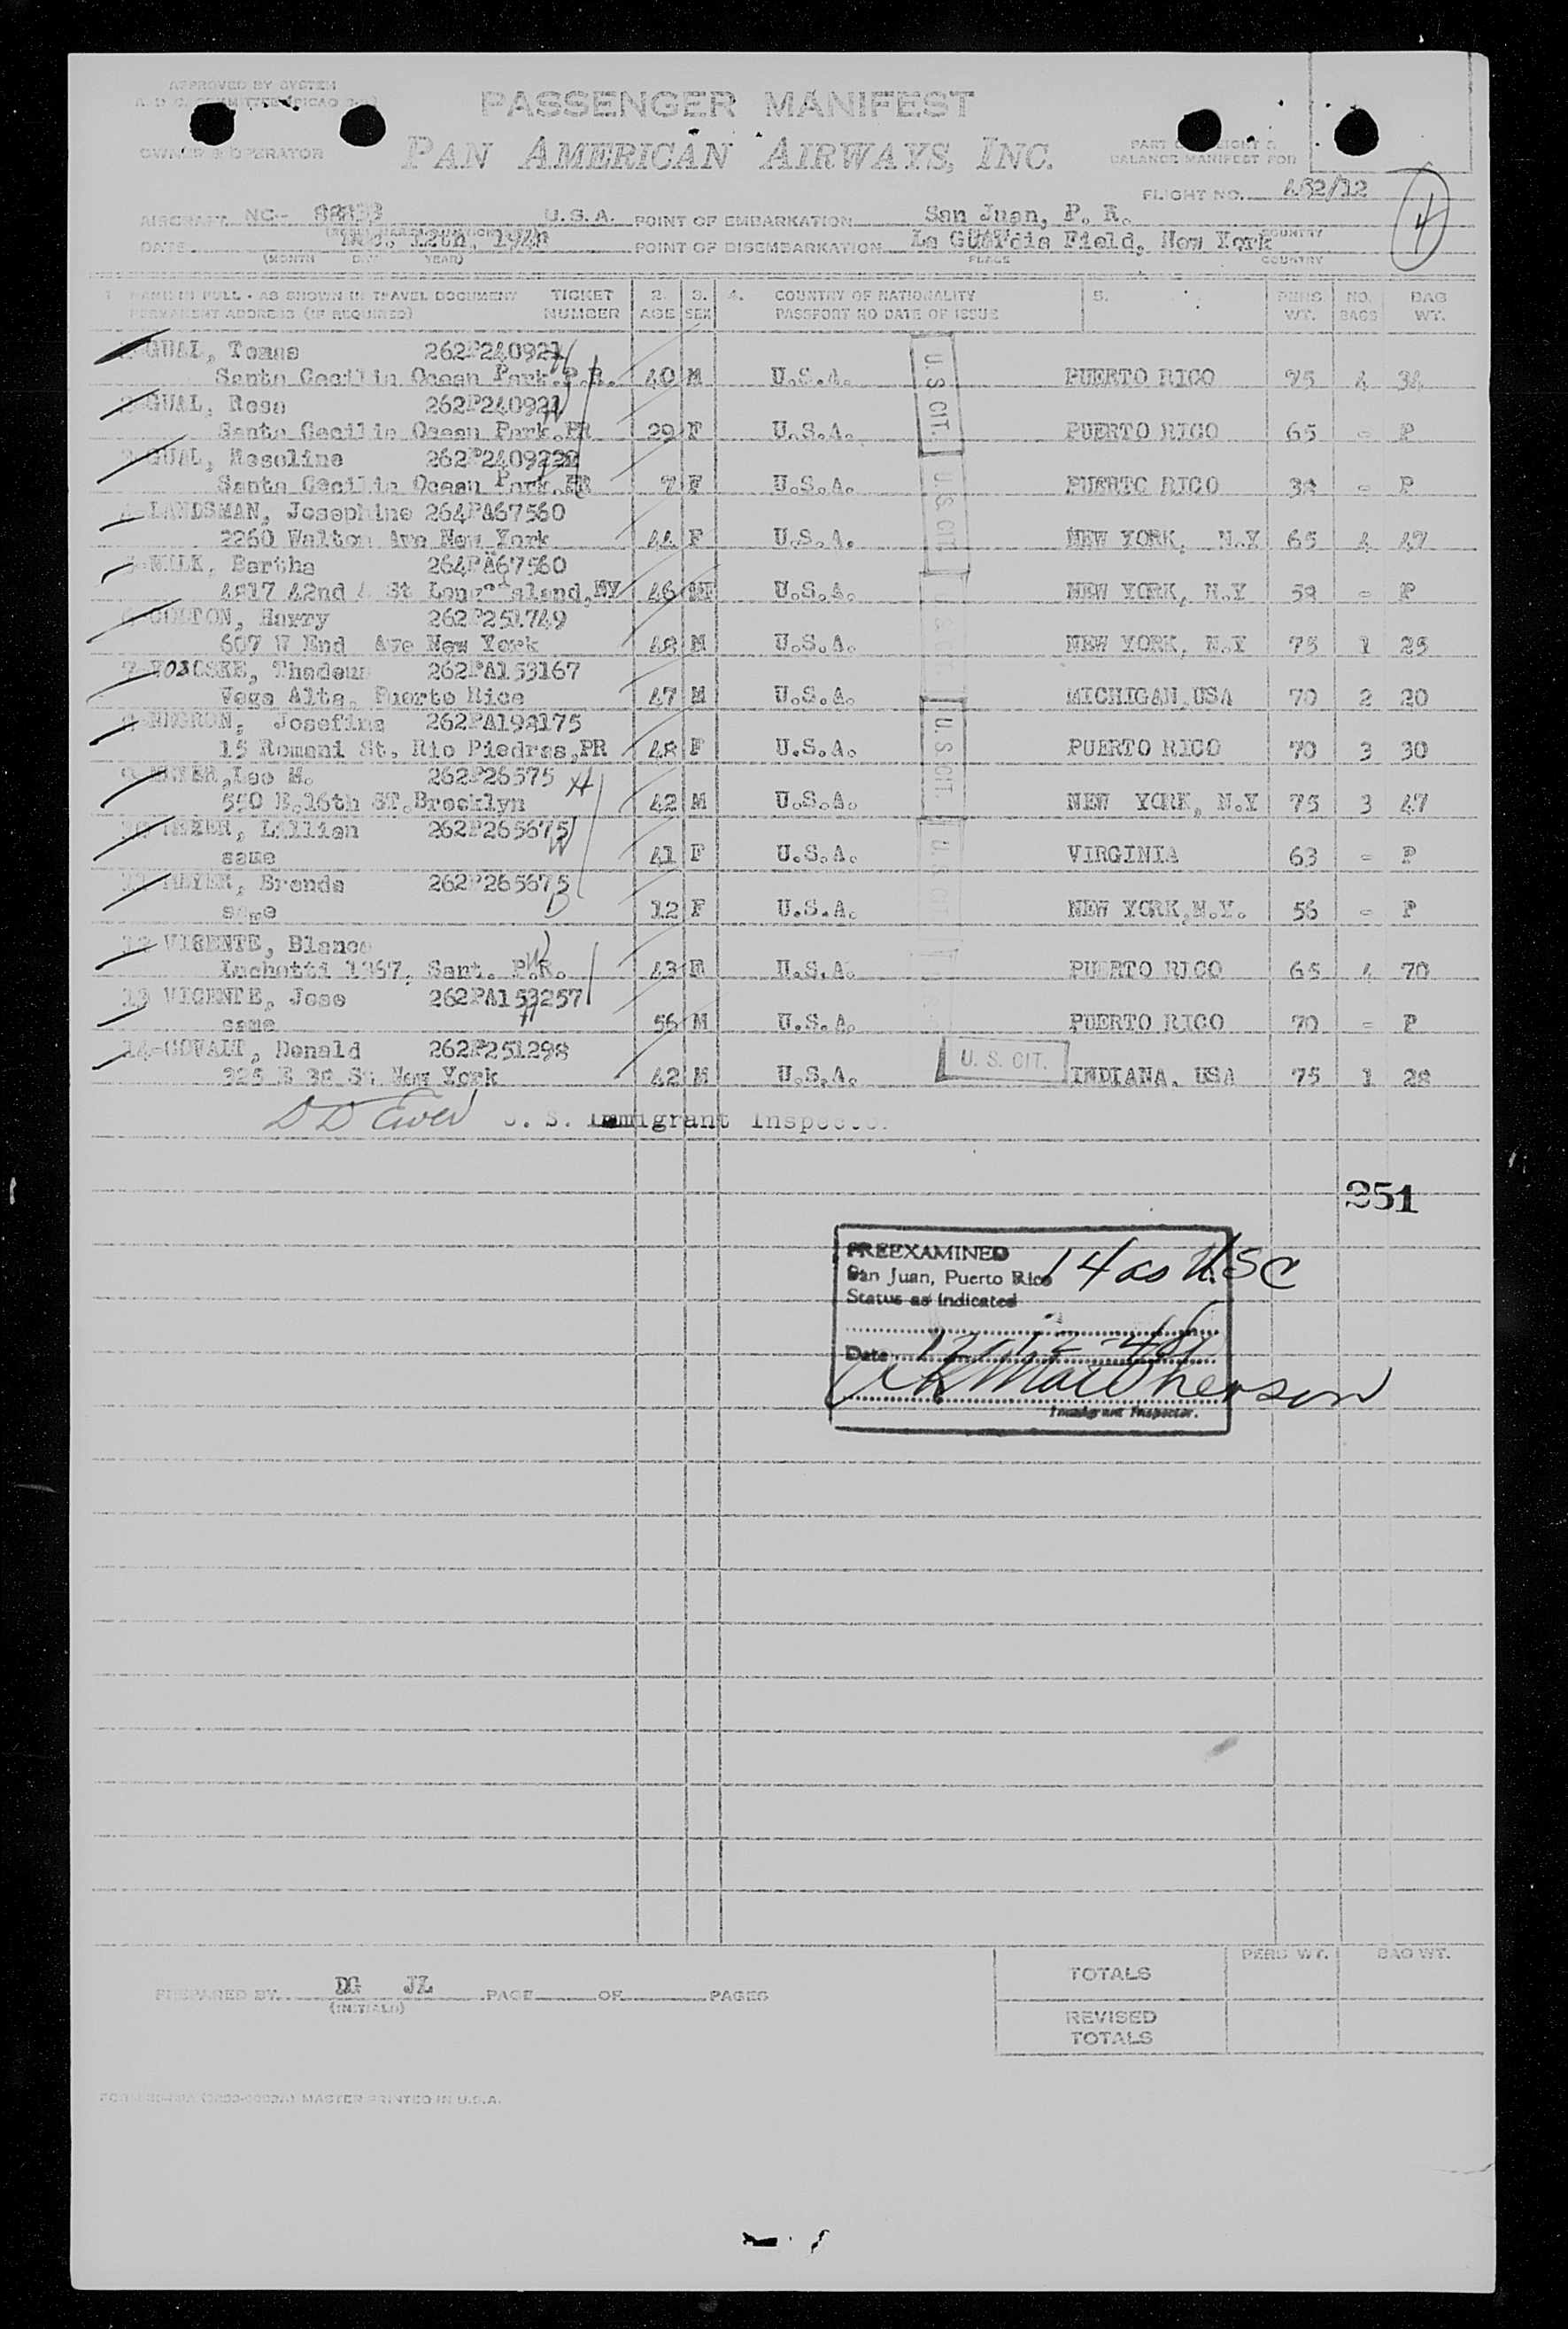 APPROVED BY SYSTEM
PASSENGER MANIFEST
OWNER & OPERATOR
PAN AMERICAN AIRWAYS, INC.
BALANCE MANIFEST FOR
FLIGHT NO. 452/12
AIRCRAFT NC- U.S.A. POINT OF EMBARKATION San Juan, P. R.
DATE 12th, 1948 POINT OF DISEMBARKATION La Guardia Field, New York
(MONTH DAY YEAR) PLACE COUNTRY
1 NAME IN FULL - AS SHOWN IN TRAVEL DOCUMENT TICKET 2. 3. 4. COUNTRY OF NATIONALITY 5. PERS NO. BAG
PERMANENT ADDRESS (IF REQUIRED) NUMBER AGE SEX PASSPORT NO DATE OF ISSUE WT. BAGS WT.
GUAL, Tomas 262P240921
Santa Cecilia Ocean Park.P.R. 40 M U.S.A. PUERTO RICO 75 4 34
GUAL, Rosa 262P240921
Santa Cecilia Ocean Park.PR 29 F U.S.A. PUERTO RICO 65 - P
GUAL, Rosaline
Santa Cecilia Ocean Park.PR 7 F U.S.A. PUERTO RICO 38 - P
LANDSMAN, Josephine 264PA67560
2260 Walton Ave New York 44 F U.S.A. NEW YORK, N.Y 65 4 47
Bertha 264PA67560
4817 42nd St Long Island,NY 46 U.S.A. NEW YORK, N.Y 58 - P
Harry 262P251749
607 W End Ave New York 48 M U.S.A. NEW YORK, N.Y 75 1 25
7 Thadeus 262PA153167
Vega Alta. Puerto Rico 47 M U.S.A. MICHIGAN.USA 70 2 20
NEGRON, Josefina 262PA198175
15 Romani St. Rio Piedras,PR 48 F U.S.A. PUERTO RICO 70 3 30
MEYER,Leo M. 262P26575 H
550 E.16th ST.Brooklyn 42 M U.S.A. NEW YORK, N.Y 75 3 47
MEYER, Lillian 262P265675 W
same 41 F U.S.A. VIRGINIA 63 - P
MEYER, Brenda 262P265675
same D 12 F U.S.A. NEW YORK,N.Y. 56 - P
12 VICENTE, Blanca W
Luchetti 1357, Sant. P.R. 43 F U.S.A. PUERTO RICO 65 4 70
13 VICENTE, Jose 262PA153257
same H 56 M U.S.A. PUERTO RICO 70 - P
14-COVALT, Donald 262P251298
325 E 38 St New York 42 M U.S.A. INDIANA, USA 75 1 28
U.S CIT.
U.S. CIT.
U.S CIT.
U.S. CIT.
U. S. CIT.
U. S. Immigrant Inspector
251
PREEXAMINED
San Juan, Puerto Rico 14 as USC
Status as indicated
Date 12-12-48
Immigrant Inspector.
PREPARED BY DG JL PAGE OF PAGES
(INITIALS)
PERS WT. BAG WT.
TOTALS
REVISED
TOTALS
MASTER PRINTED IN U.S.A.